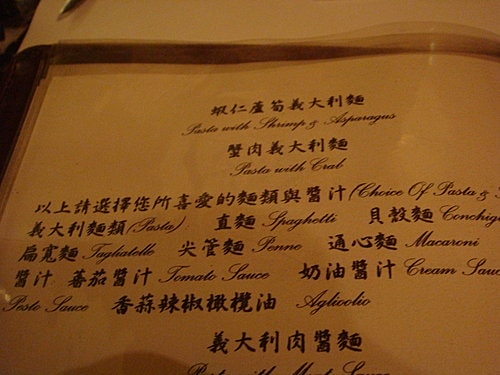 蝦仁蘆筍義大利麵
Pasta with Shrimp & Asparagus
蟹肉義大利麵
Pasta with Crab
以上請選擇您所喜愛的麵類與醬汁(Choice Of Pasta &
義大利麵類(Pasta) 直麵 Spaghetti 貝殼麵 Conchig
扁寬麵 Tagliatelle 尖管麵 Penne 通心麵 Macaroni
醬汁 蕃茄醬汁 Tomato Sauce 奶油醬汁 Cream Sauc
Pesto Sauce 香蒜辣椒橄欖油 Aglicolio
義大利肉醬麵
Pasta with Meat Sauce